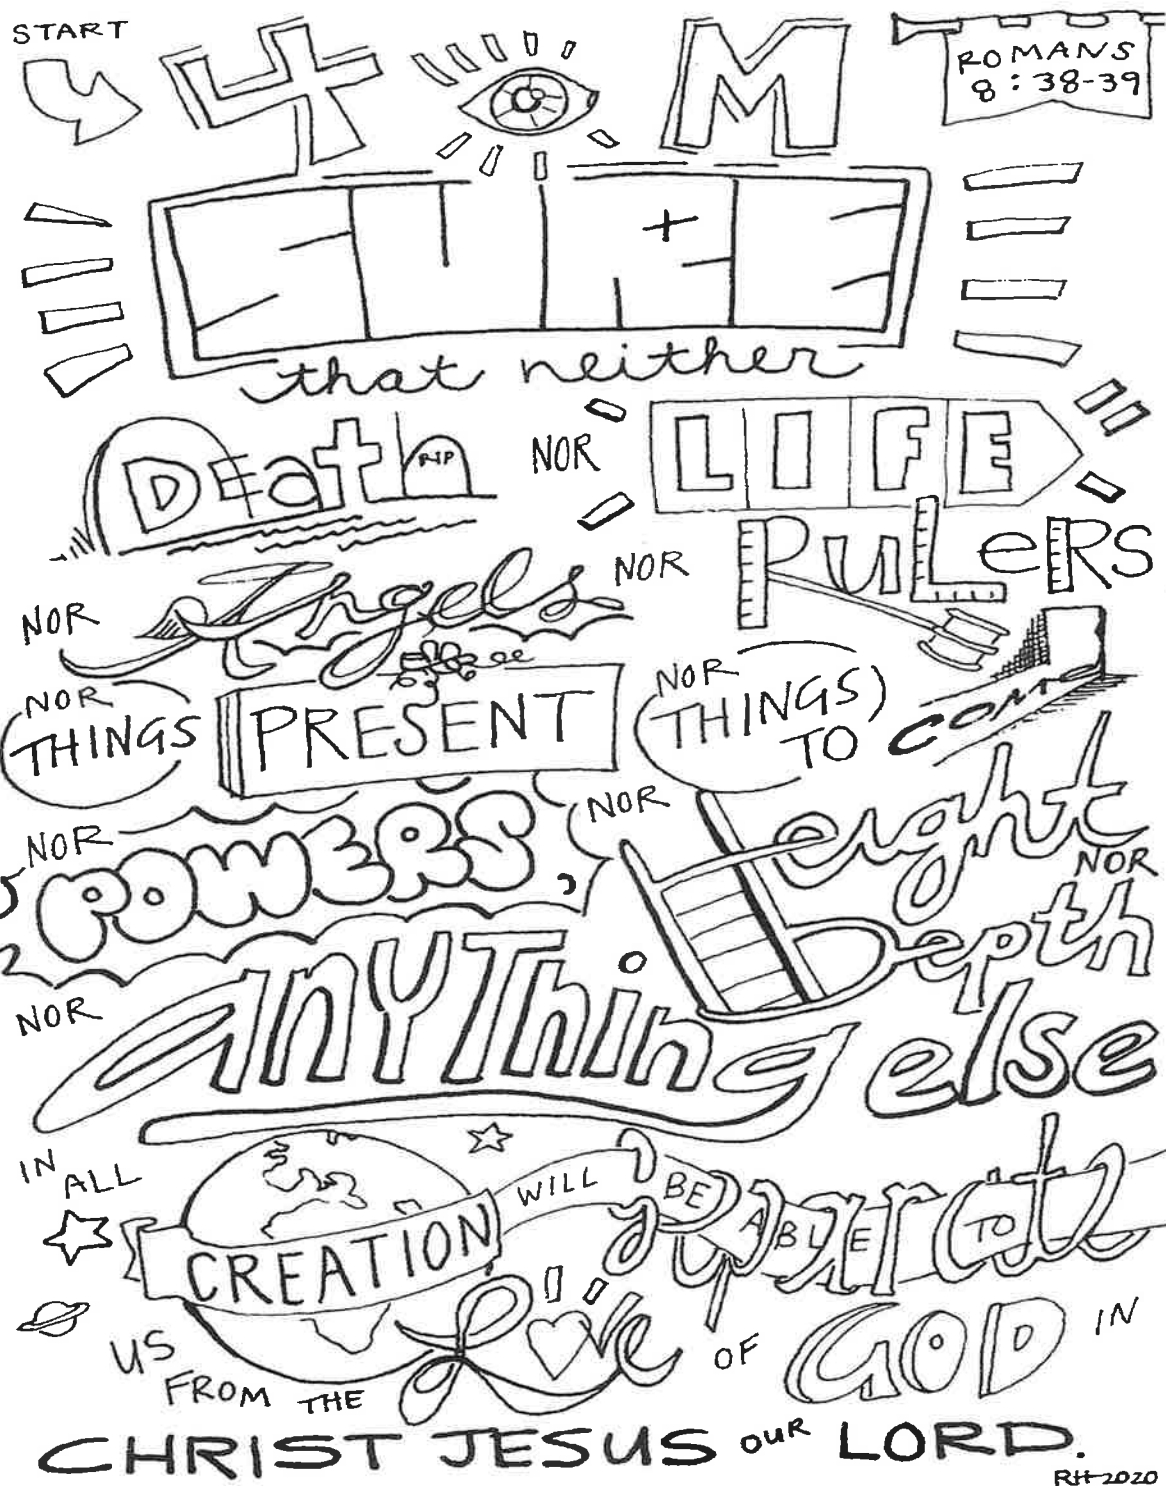 START
4 M
ROMANS
8:38-39
SURE
that neither
Death RIP NOR LIFE
NOR Angels NOR RULERS
NOR THINGS PRESENT NOR THINGS TO COME
NOR POWERS, NOR Height
NOR Depth
NOR anYThing else
IN ALL CREATION WILL BE ABLE TO
Separate
US FROM THE LOVe OF GOD IN
CHRIST JESUS OUR LORD.
RH 2020